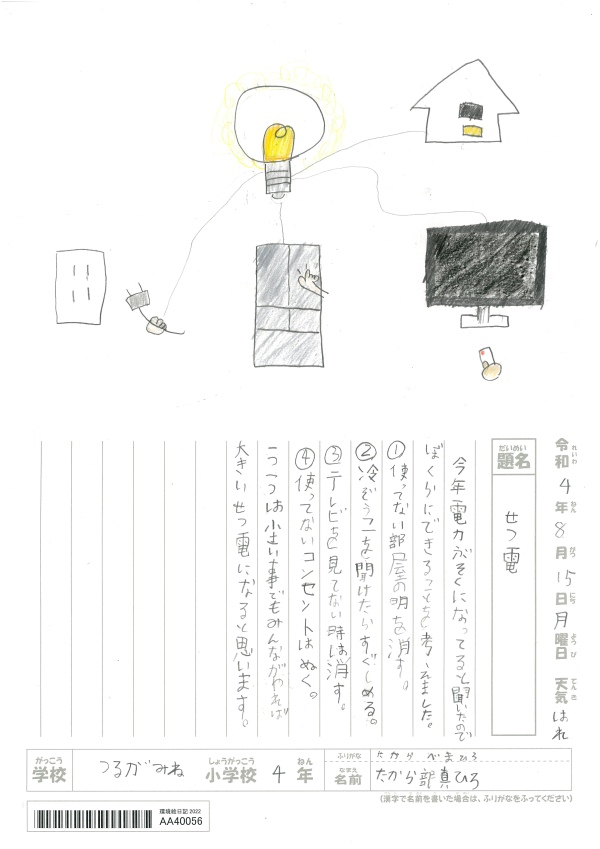 令和4年8月15日月曜日 天気 はれ
れいわ ねん がつ にち ようび てんき
だいめい
題名
せつ電
今年電力がふそくになってると聞いたので
ぼくらにできることを考えました。
①使ってない部屋の明を消す。
②冷ぞうこを開けたらすぐしめる。
③テレビを見てない時は消す。
④使ってないコンセントはぬく。
一つ一つは小さい事でもみんながやれば
大きいせつ電になると思います。
がっこう しょうがっこう ねん
学校 つるがみね 小学校 4年
ふりがな
なまえ
名前 たから部真ひろ
(漢字で名前を書いた場合は、ふりがなをふってください)
環境絵日記 2022
AA40056